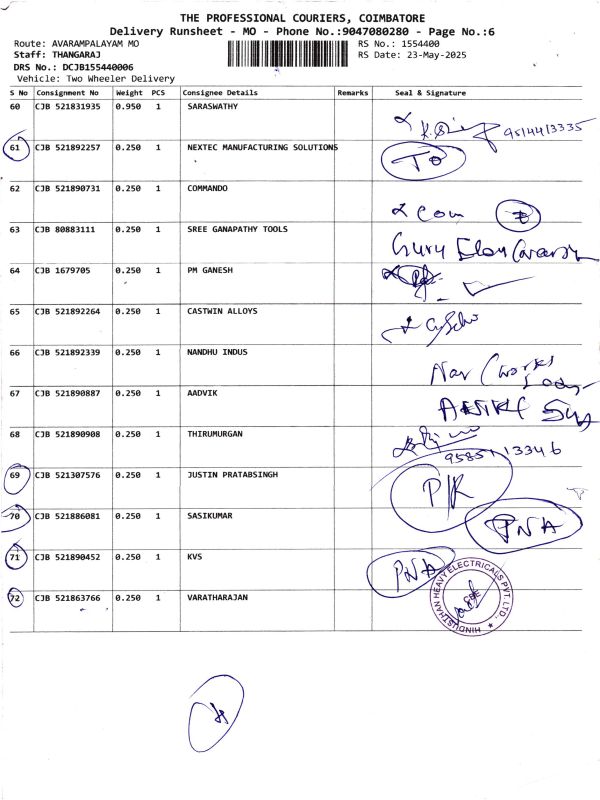 THE PROFESSIONAL COURIERS, COIMBATORE
Delivery Runsheet - MO - Phone No.:9047080280 - Page No.:6
Route: AVARAMPALAYAM MO RS No.: 1554400
Staff: THANGARAJ RS Date: 23-May-2025
DRS No.: DCJB155440006
Vehicle: Two Wheeler Delivery
S No Consignment No Weight PCS Consignee Details Remarks Seal & Signature
60 CJB 521831935 0.950 1 SARASWATHY
9514413335
61 CJB 521892257 0.250 1 NEXTEC MANUFACTURING SOLUTIONS
TO
62 CJB 521890731 0.250 1 COMMANDO
Com
63 CJB 80883111 0.250 1 SREE GANAPATHY TOOLS
Guru
64 CJB 1679705 0.250 1 PM GANESH
65 CJB 521892264 0.250 1 CASTWIN ALLOYS
66 CJB 521892339 0.250 1 NANDHU INDUS
67 CJB 521890887 0.250 1 AADVIK
68 CJB 521890908 0.250 1 THIRUMURGAN
69 CJB 521307576 0.250 1 JUSTIN PRATABSINGH
P/K
70 CJB 521886081 0.250 1 SASIKUMAR
PNA
71 CJB 521890452 0.250 1 KVS
PNA
72 CJB 521863766 0.250 1 VARATHARAJAN
HINDUSTHAN HEAVY ELECTRICALS PVT. LTD.